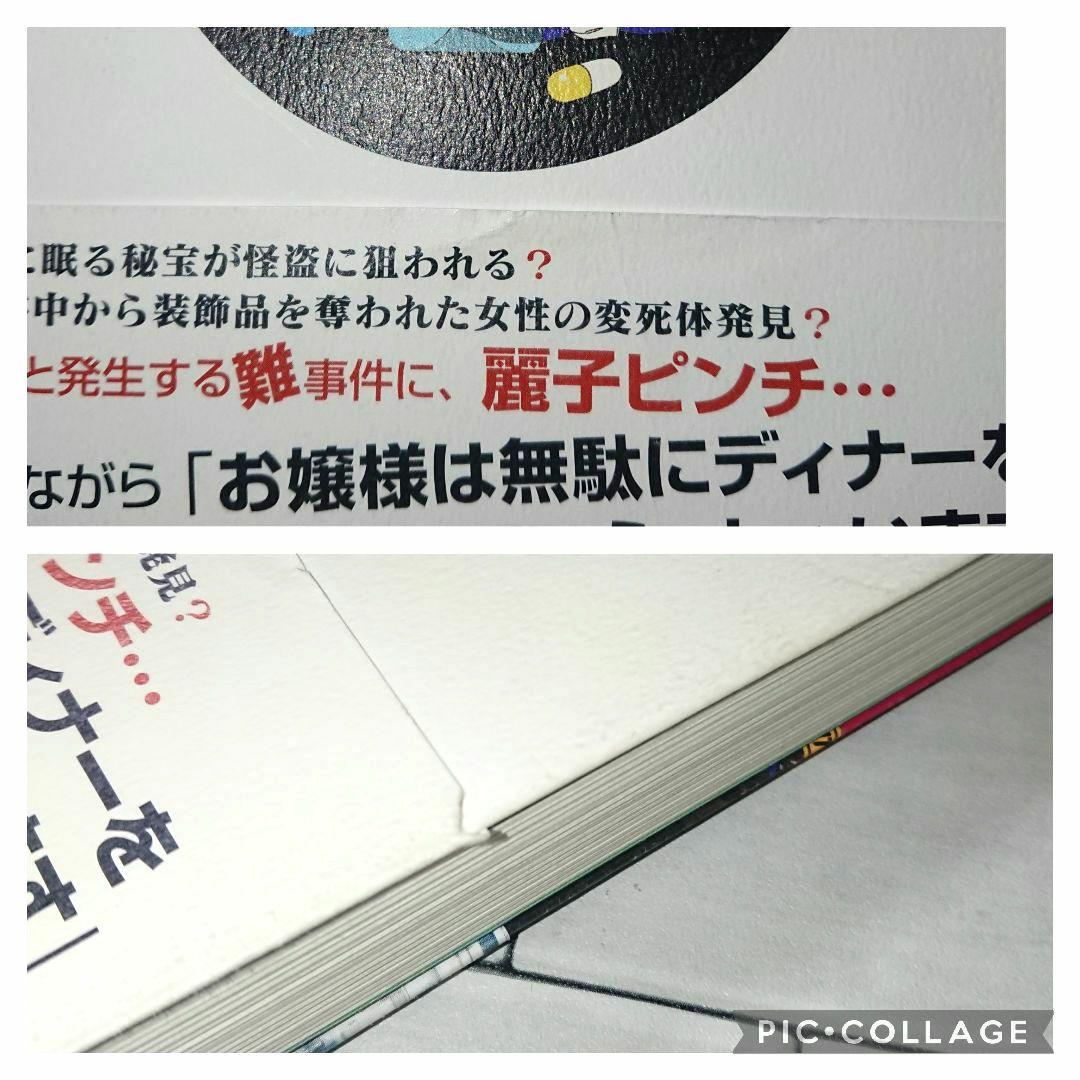 に眠る秘宝が怪盗に狙われる？
中から装飾品を奪われた女性の変死体発見？
と発生する難事件に、麗子ピンチ…
ながら「お嬢様は無駄にディナーを
発見？
ンチ…
ディナーを
ます」
PIC•COLLAGE